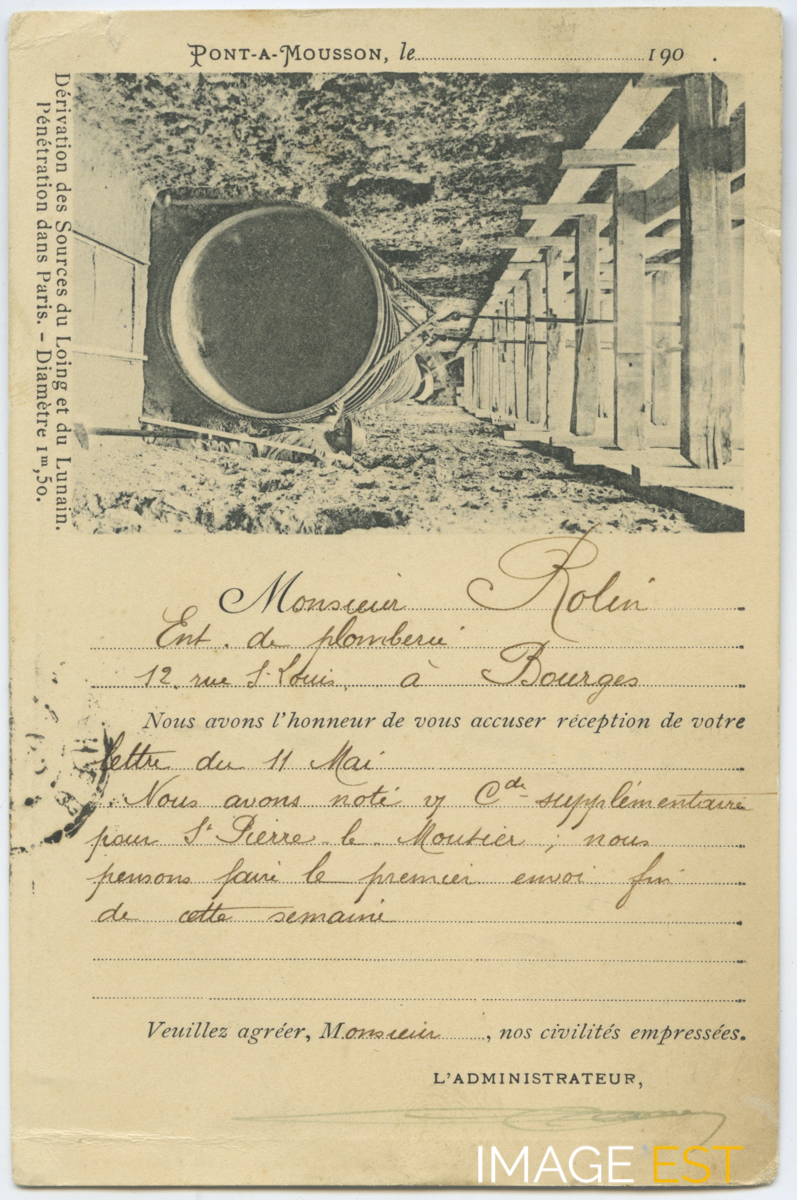 PONT-A-MOUSSON, le 190 .
Dérivation des Sources du Loing et du Lunain.
Pénétration dans Paris. – Diamètre 1m,50.
Monsieur Rolin
Ent. de plomberie
12, rue St Louis, à Bourges
Nous avons l'honneur de vous accuser réception de votre
lettre du 11 Mai
Nous avons noté v/ Cde supplémentaire
pour St Pierre le Moutier ; nous
pensons faire le premier envoi fin
de cette semaine
Veuillez agréer, Monsieur, nos civilités empressées.
L'ADMINISTRATEUR,
IMAGE'EST